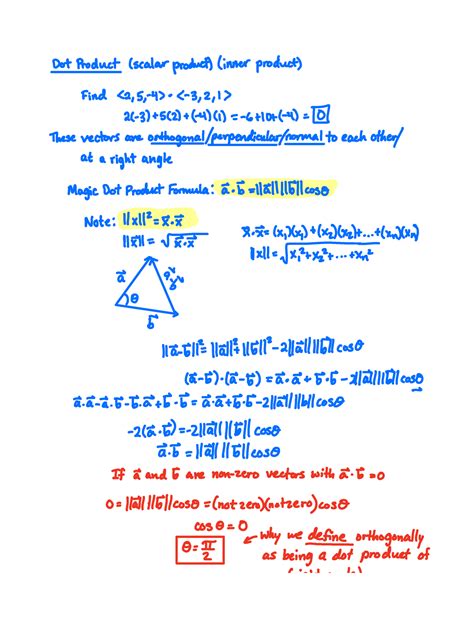 Dot Product (scalar product) (inner product)
Find <2,5,-4> · <-3,2,1>
2(-3)+5(2)+(-4)(1) = -6+10+(-4) = 0
These vectors are orthogonal/perpendicular/normal to each other/
at a right angle
Magic Dot Product Formula: a⃗·b⃗ = ||a⃗|| ||b⃗|| cosθ
Note: ||x||² = x⃗·x⃗
||x⃗|| = √(x⃗·x⃗)
x⃗·x⃗ = (x₁)(x₁)+(x₂)(x₂)+...+(xₙ)(xₙ)
||x|| = √(x₁²+x₂²+...+xₙ²)
a⃗
θ
b⃗
||a⃗-b⃗||² = ||a⃗||²+||b⃗||²-2||a⃗|| ||b⃗|| cosθ
(a⃗-b⃗)·(a⃗-b⃗) = a⃗·a⃗+b⃗·b⃗-2||a⃗|| ||b⃗|| cosθ
a⃗·a⃗-a⃗·b⃗-b⃗·a⃗+b⃗·b⃗ = a⃗·a⃗+b⃗·b⃗-2||a⃗|| ||b|| cosθ
-2(a⃗·b⃗) = -2||a⃗|| ||b⃗|| cosθ
a⃗·b⃗ = ||a⃗|| ||b⃗|| cosθ
If a⃗ and b⃗ are non-zero vectors with a⃗·b⃗=0
0 = ||a⃗|| ||b⃗|| cosθ = (not zero)(not zero) cosθ
cosθ = 0
θ = π/2
Why we define orthogonally
as being a dot product of